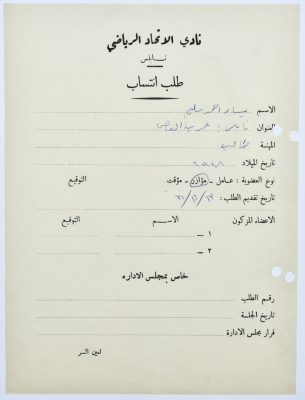 نادي الاتحاد الرياضي
نابلس
طلب انتساب
الاسم
العنوان نابلس :
المهنة طالب
تاريخ الميلاد
نوع العضوية : عامل ـ مؤازر ـ مؤقت التوقيع
تاريخ تقديم الطلب :
الاعضاء المزكون الاسم التوقيع
١ ـ
٢ ـ
خاص بمجلس الاداره
رقم الطلب
تاريخ الجلسة
قرار مجلس الادارة
امين السر